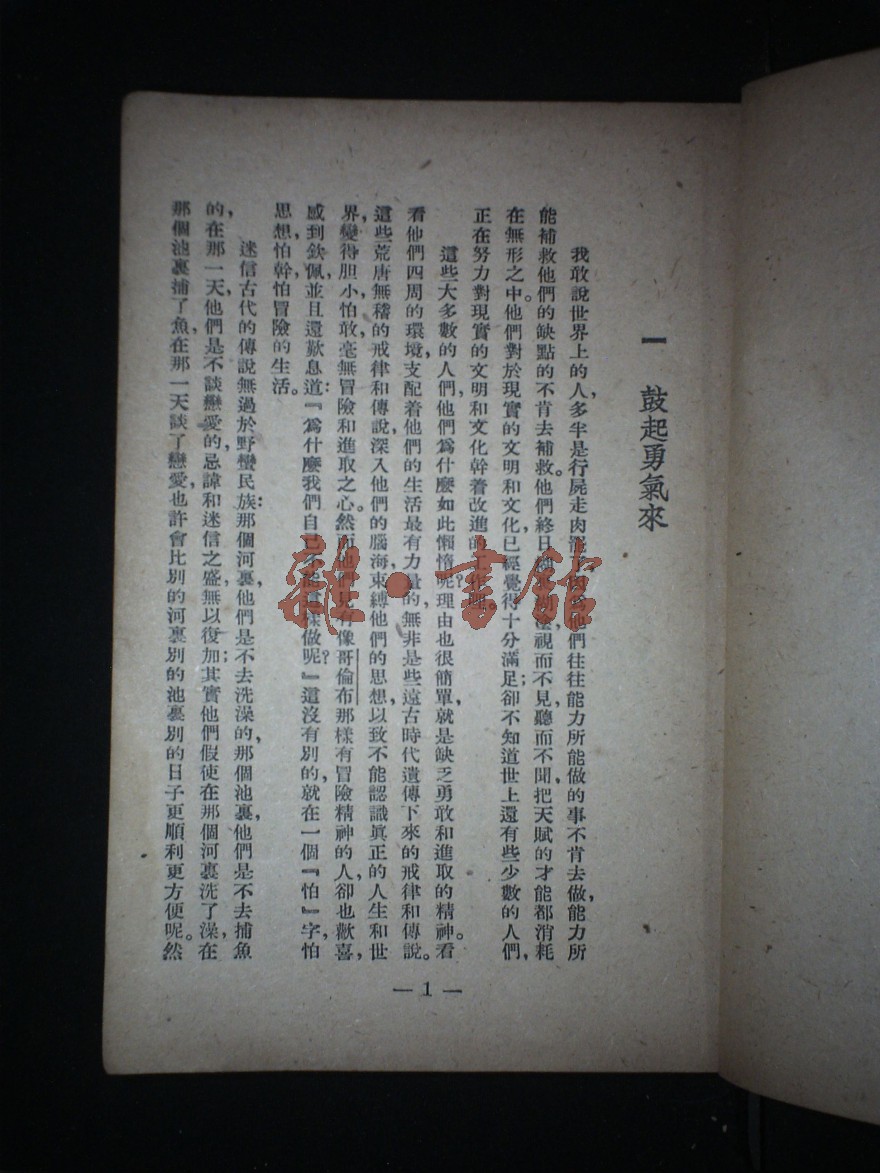 一 鼓起勇氣來
我敢說世界上的人，多半是行屍走肉罷了，因爲他們往往能力所能做的事不肯去做，能力所
能補救他們的缺點的不肯去補救。他們終日視而不見，聽而不聞，把天賦的才能都消耗
在無形之中。他們對於現實的文明和文化，已經覺得十分滿足；卻不知道世上還有些少數的人們，
正在努力對現實的文明和文化幹着改進的工作哩。
這些大多數的人們，他們爲什麼如此懶惰呢？理由也很簡單，就是缺乏勇敢和進取的精神。看
看他們四周的環境，支配着他們的生活最有力量的，無非是些遠古時代遺傳下來的戒律和傳說。
這些荒唐無稽的戒律和傳說，深入他們的腦海，束縛他們的思想，以致不能認識眞正的人生和世
界，變得胆小怕敢，毫無冒險和進取之心。然而他們見有像哥倫布那樣有冒險精神的人，卻也歡喜，
感到欽佩，並且還歎息道：『爲什麼我們自己不能這樣做呢？』這沒有別的，就在一個『怕』字，怕
思想，怕幹，怕冒險的生活。
迷信古代的傳說無過於野蠻民族：那個河裏，他們是不去洗澡的，那個池裏，他們是不去捕魚
的，在那一天，他們是不談戀愛的，忌諱和迷信之盛，無以復加；其實他們假使在那個河裏洗了澡，在
那個池裏捕了魚，在那一天談了戀愛，也許會比別的河裏別的池裏別的日子更順利更方便呢。然
— 1 —
雜·書館